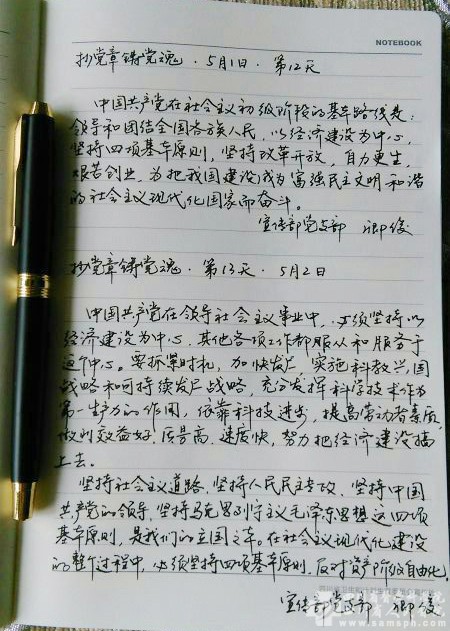 NOTEBOOK
抄党章铸党魂·5月1日·第12天
中国共产党在社会主义初级阶段的基本路线是：
领导和团结全国各族人民，以经济建设为中心，
坚持四项基本原则，坚持改革开放，自力更生，
艰苦创业，为把我国建设成为富强民主文明和谐
的社会主义现代化国家而奋斗。
宣传部党支部 卿俊
抄党章铸党魂·第13天·5月2日
中国共产党在领导社会主义事业中，必须坚持以
经济建设为中心，其他各项工作都服从和服务于
这个中心。要抓紧时机，加快发展，实施科教兴国
战略和可持续发展战略，充分发挥科学技术作为
第一生产力的作用，依靠科技进步，提高劳动者素质，
做到效益好，质量高，速度快，努力把经济建设搞
上去。
坚持社会主义道路、坚持人民民主专政、坚持中国
共产党的领导、坚持马克思列宁主义毛泽东思想这四项
基本原则，是我们的立国之本。在社会主义现代化建设
的整个过程中，必须坚持四项基本原则，反对资产阶级自由化。
宣传部党支部 卿俊
www.samsph.com